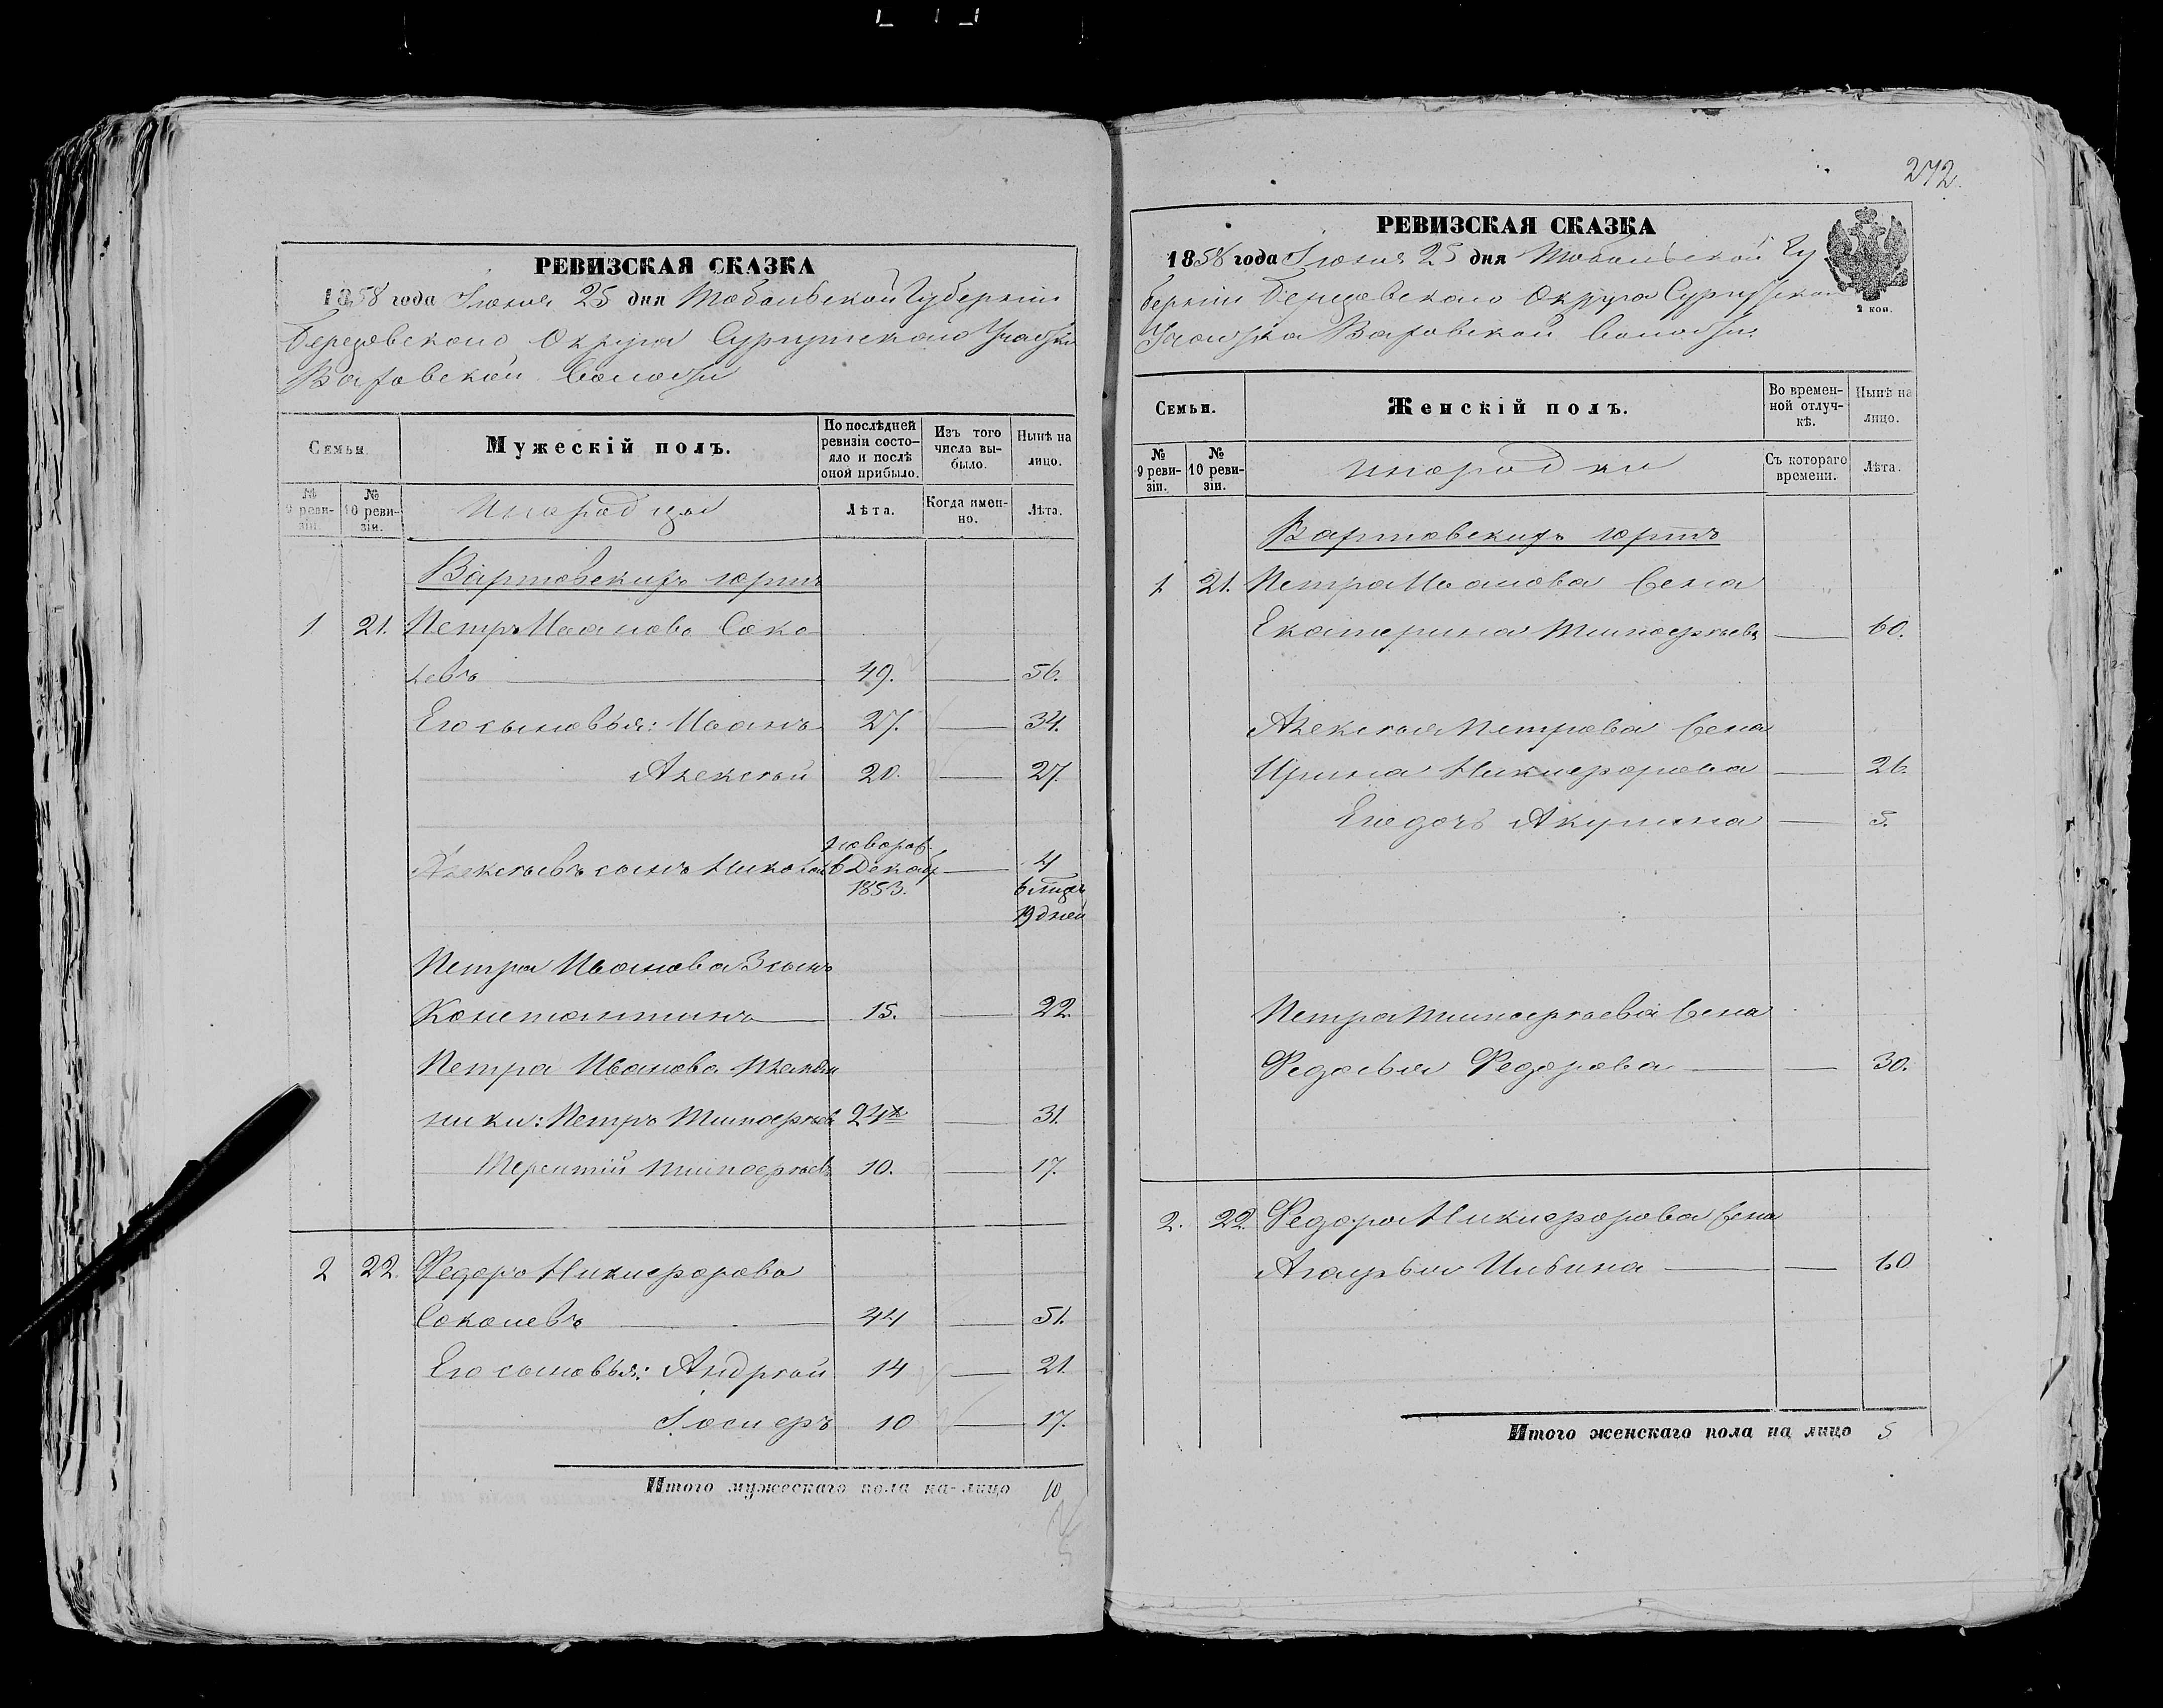 РЕВИЗСКАЯ СКАЗКА
1858 года Іюня 25 дня Тобольской Губерніи
Березовскаго Округа Сургутскаго Участка
Ваховской волости
Семьи.
Мужескій полъ.
По послѣдней ревизіи состояло и послѣ оной прибыло.
Изъ того числа выбыло.
Нынѣ на лицо.
№ 9 ревизіи.
№ 10 ревизіи.
Инородцы
Лѣта.
Когда именно.
Лѣта.
Вартовскихъ юртъ
1 21. Петръ Ивановъ Соко
левъ 49. 56.
Его сыновья: Иванъ 27. 34.
Алексѣй 20. 27.
новорож.
Алексѣевъ сынъ Николай въ Декаб. 4
1853. 6 мѣсяц.
19 дней
Петра Иванова 3 сынъ
Константинъ 15. 22.
Петра Иванова племян
ники: Петръ Тимоѳеевъ 24 31.
Терентій Тимоѳеевъ 10. 17.
2 22. Федоръ Никифоровъ
Соколевъ 44 51.
Его сыновья: Андрей 14 21.
Іосифъ 10 17.
Итого мужескаго пола на-лицо 10
272.
РЕВИЗСКАЯ СКАЗКА
1858 года Іюня 25 дня Тобольской Гу
берніи Березовскаго Округа Сургутскаго
Участка Ваховской волости.
2 коп.
Семьи.
Женскій полъ.
Во временной отлучкѣ.
Нынѣ на лицо.
№ 9 ревизіи.
№ 10 ревизіи.
Инородки
Съ котораго времени.
Лѣта.
Вартовскихъ юртъ
1. 21. Петра Иванова жена
Екатерина Тимоѳеева 60.
Алексѣя Петрова жена
Ирина Никифорова 26.
Его дочь Акулина 5.
Петра Тимоѳеева жена
Федосья Федорова 30.
2. 22. Федора Никифорова жена
Агафья Ильина 60
Итого женскаго пола на лицо 5